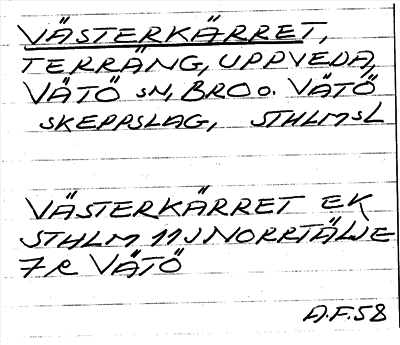 VÄSTERKÄRRET,
TERRÄNG, UPPVEDA,
VÄTÖ SN, BRO O. VÄTÖ
SKEPPSLAG, STHLMSL
VÄSTERKÄRRET EK
STHLM 11J NORRTÄLJE
7 R VÄTÖ
A.F.58